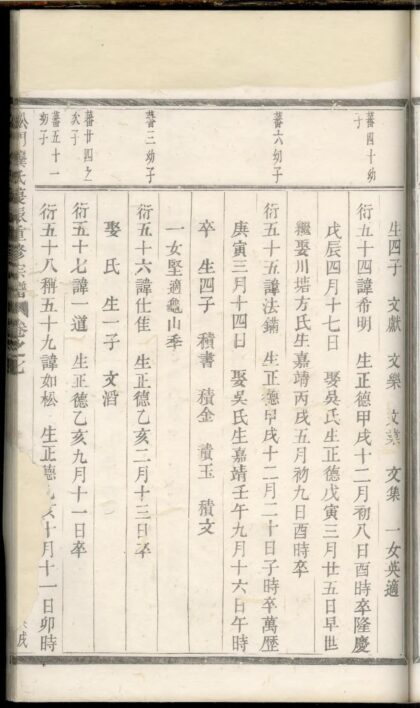 生四子 文獻 文樂 文 文集 一女英適
蕃四十幼子
衍五十四諱希明 生正德甲戌十二月初八日酉時卒隆慶
戊辰四月十七日 娶吳氏生正德戊寅三月廿五日早世
繼娶川塔方氏生嘉靖丙戌五月初九日酉時卒
蕃六幼子
衍五十五諱法鏽 生正德甲戌十二月二十日子時卒萬歷
庚寅三月十四日 娶吳氏生嘉靖壬午九月十六日午時
卒 生四子 積書 積金 積玉 積文
一女堅適龜山季
蕃三幼子
衍五十六諱仕隹 生正德乙亥二月十三日卒
娶 氏 生一子 文滔
蕃廿四之次子
衍五十七諱一道 生正德乙亥九月十一日卒
蕃五十一幼子
衍五十八稱五十九諱如松 生正德 亥十月十一日卯時
松門 氏 重修宗譜 卷之七
戌